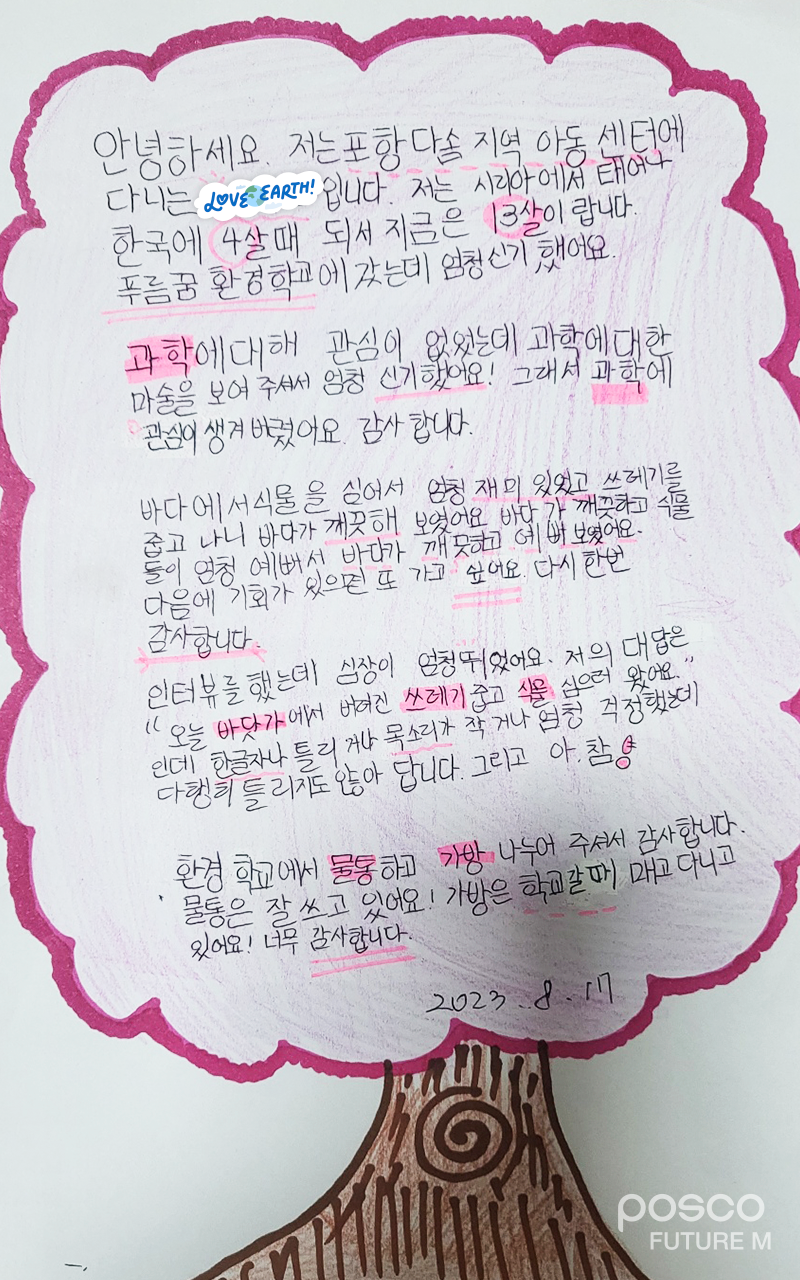 안녕하세요. 저는 포항 다솔 지역 아동 센터에
다니는 LOVE EARTH! 입니다. 저는 시리아에서 태어나
한국에 4살 때 되서 지금은 13살이 랍니다.
푸름꿈 환경학교에 갔는데 엄청 신기 했어요.
과학에 대해 관심이 없었는데 과학에 대한
마술을 보여 주셔서 엄청 신기했어요! 그래서 과학에
관심이 생겨 버렸어요. 감사 합니다.
바다에서 식물을 심어서 엄청 재미 있었고 쓰레기를
줍고 나니 바다가 깨끗해 보였어요 바다가 깨끗하고 식물
들이 엄청 예뻐서 바다가 깨끗하고 예뻐 보였어요.
다음에 기회가 있으면 또 가고 싶어요. 다시 한번
감사합니다.
인터뷰를 했는데 심장이 엄청 뛰었어요. 저의 대답은
"오늘 바닷가에서 버려진 쓰레기 줍고 식물 심으러 왔어요."
인데 한글자나 틀리 거나 목소리가 작 거나 엄청 걱정했는데
다행히 틀리지도 않아 답니다. 그리고 아, 참
환경 학교에서 물통하고 가방 나누어 주셔서 감사합니다.
물통은 잘 쓰고 있어요! 가방은 학교갈 때 매고 다니고
있어요! 너무 감사합니다.
2023. 8. 17
posco
FUTURE M